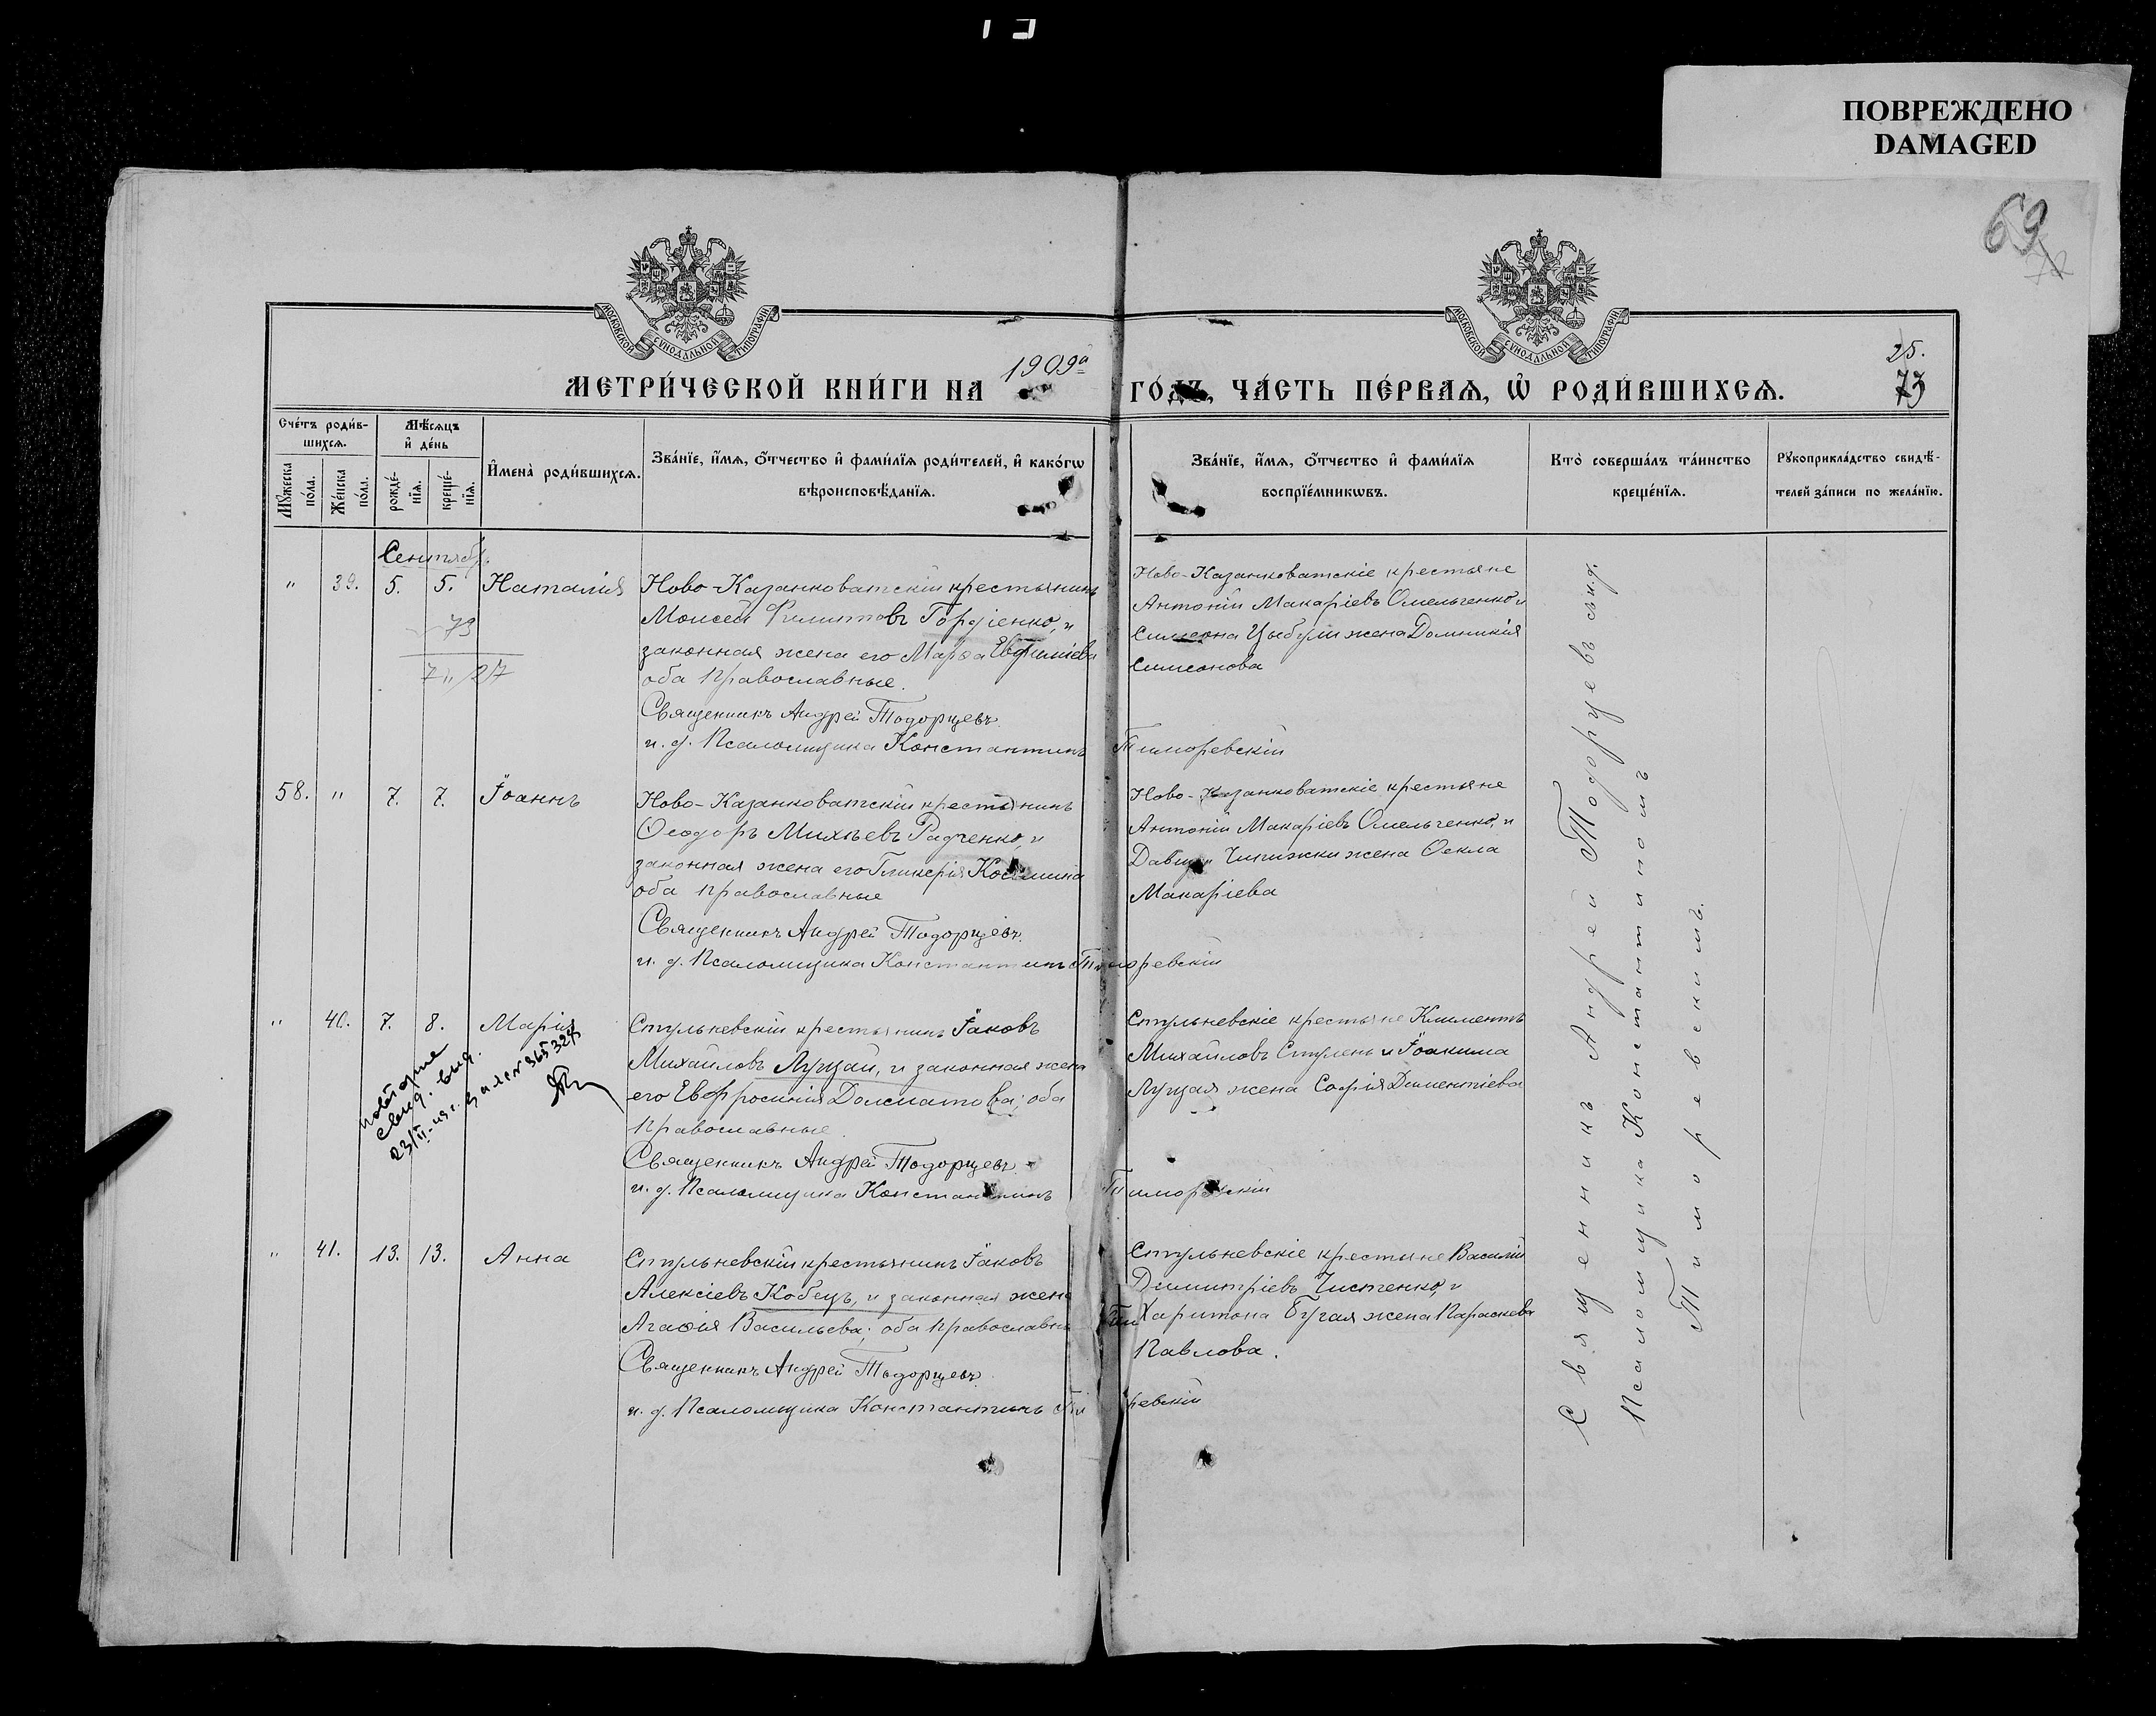 ПОВРЕЖДЕНО
DAMAGED
69
МОСКОВСКОЙ СѴНОДАЛЬНОЙ ТИПОГРАФІИ
МОСКОВСКОЙ СѴНОДАЛЬНОЙ ТИПОГРАФІИ
25.
73
МЕТРИ́ЧЕСКОЙ КНИ́ГИ НА 1909й ГО́ДЪ, ЧА́СТЬ ПЕ́РВАѦ, Ѡ РОДИ́ВШИХСѦ.
Сче́тъ роди́вшихсѧ.
Мꙋ́жеска по́ла.
Же́нска по́ла.
Мѣ́сѧцъ и де́нь
рожде́нїѧ.
креще́нїѧ.
И҆мена̀ роди́вшихсѧ.
Зва́нїе, и҆́мѧ, ѻ҆́тчество и҆ фами́лїѧ роди́телей, и҆ како́гѡ
вѣроисповѣ́данїѧ.
Зва́нїе, и҆́мѧ, ѻ҆́тчество и҆ фами́лїѧ
воспрїе́мникѡвъ.
Кто̀ соверша́лъ та́инство
креще́нїѧ.
Рꙋкоприкла́дство свидѣ́-
телей за́писи по жела́нїю.
Сентябр.
" 39. 5. 5. Наталія
Ново-Казанковатскій крестьянинъ
Моисей Филиповъ Гордіенко, и
законная жена его Марѳа Евфиміева
оба православные.
Священникъ Андрей Тодорцевъ.
и. д. Псаломщика Константинъ Тиморевскій
Ново-Казанковатскіе крестьяне
Антоній Макаріевъ Омельченко и
Симеона Цыбули жена Домникія
Симеонова
73
58. " 7. 7. Іоаннъ
Ново-Казанковатскій крестьянинъ
Ѳеодоръ Михѣевъ Радченко, и
законная жена его Гликерія Космина
оба православные
Священникъ Андрей Тодорцевъ.
и. д. Псаломщика Константинъ Тиморевскій
Ново-Казанковатскіе крестьяне
Антоній Макаріевъ Омельченко, и
Давида Чипижки жена Ѳекла
Макаріева
" 40. 7. 8. Марія
Стульневскій крестьянинъ Іаковъ
Михайловъ Луцай, и законная жена
его Евфросинія Долматова; оба
православные.
Священникъ Андрей Тодорцевъ.
и. д. Псаломщика Константинъ Тиморевскій
Стульневскіе крестьяне Климентъ
Михайловъ Стулень и Іоакима
Луцая жена Софія Дементіева
повторне
свид. вид.
" 41. 13. 13. Анна
Стульневскій крестьянинъ Іаковъ
Алексіевъ Кобецъ, и законная жена
Агаѳія Васильева; оба православны
Священникъ Андрей Тодорцевъ.
и. д. Псаломщика Константинъ Тиморевскій
Стульневскіе крестьяне Василій
Димитріевъ Чистенко, и
Харитона Бугая жена Параскева
Павлова.
Священникъ Андрей Тодорцевъ съ и.д.
Псаломщика Константиномъ
Тиморевскимъ.